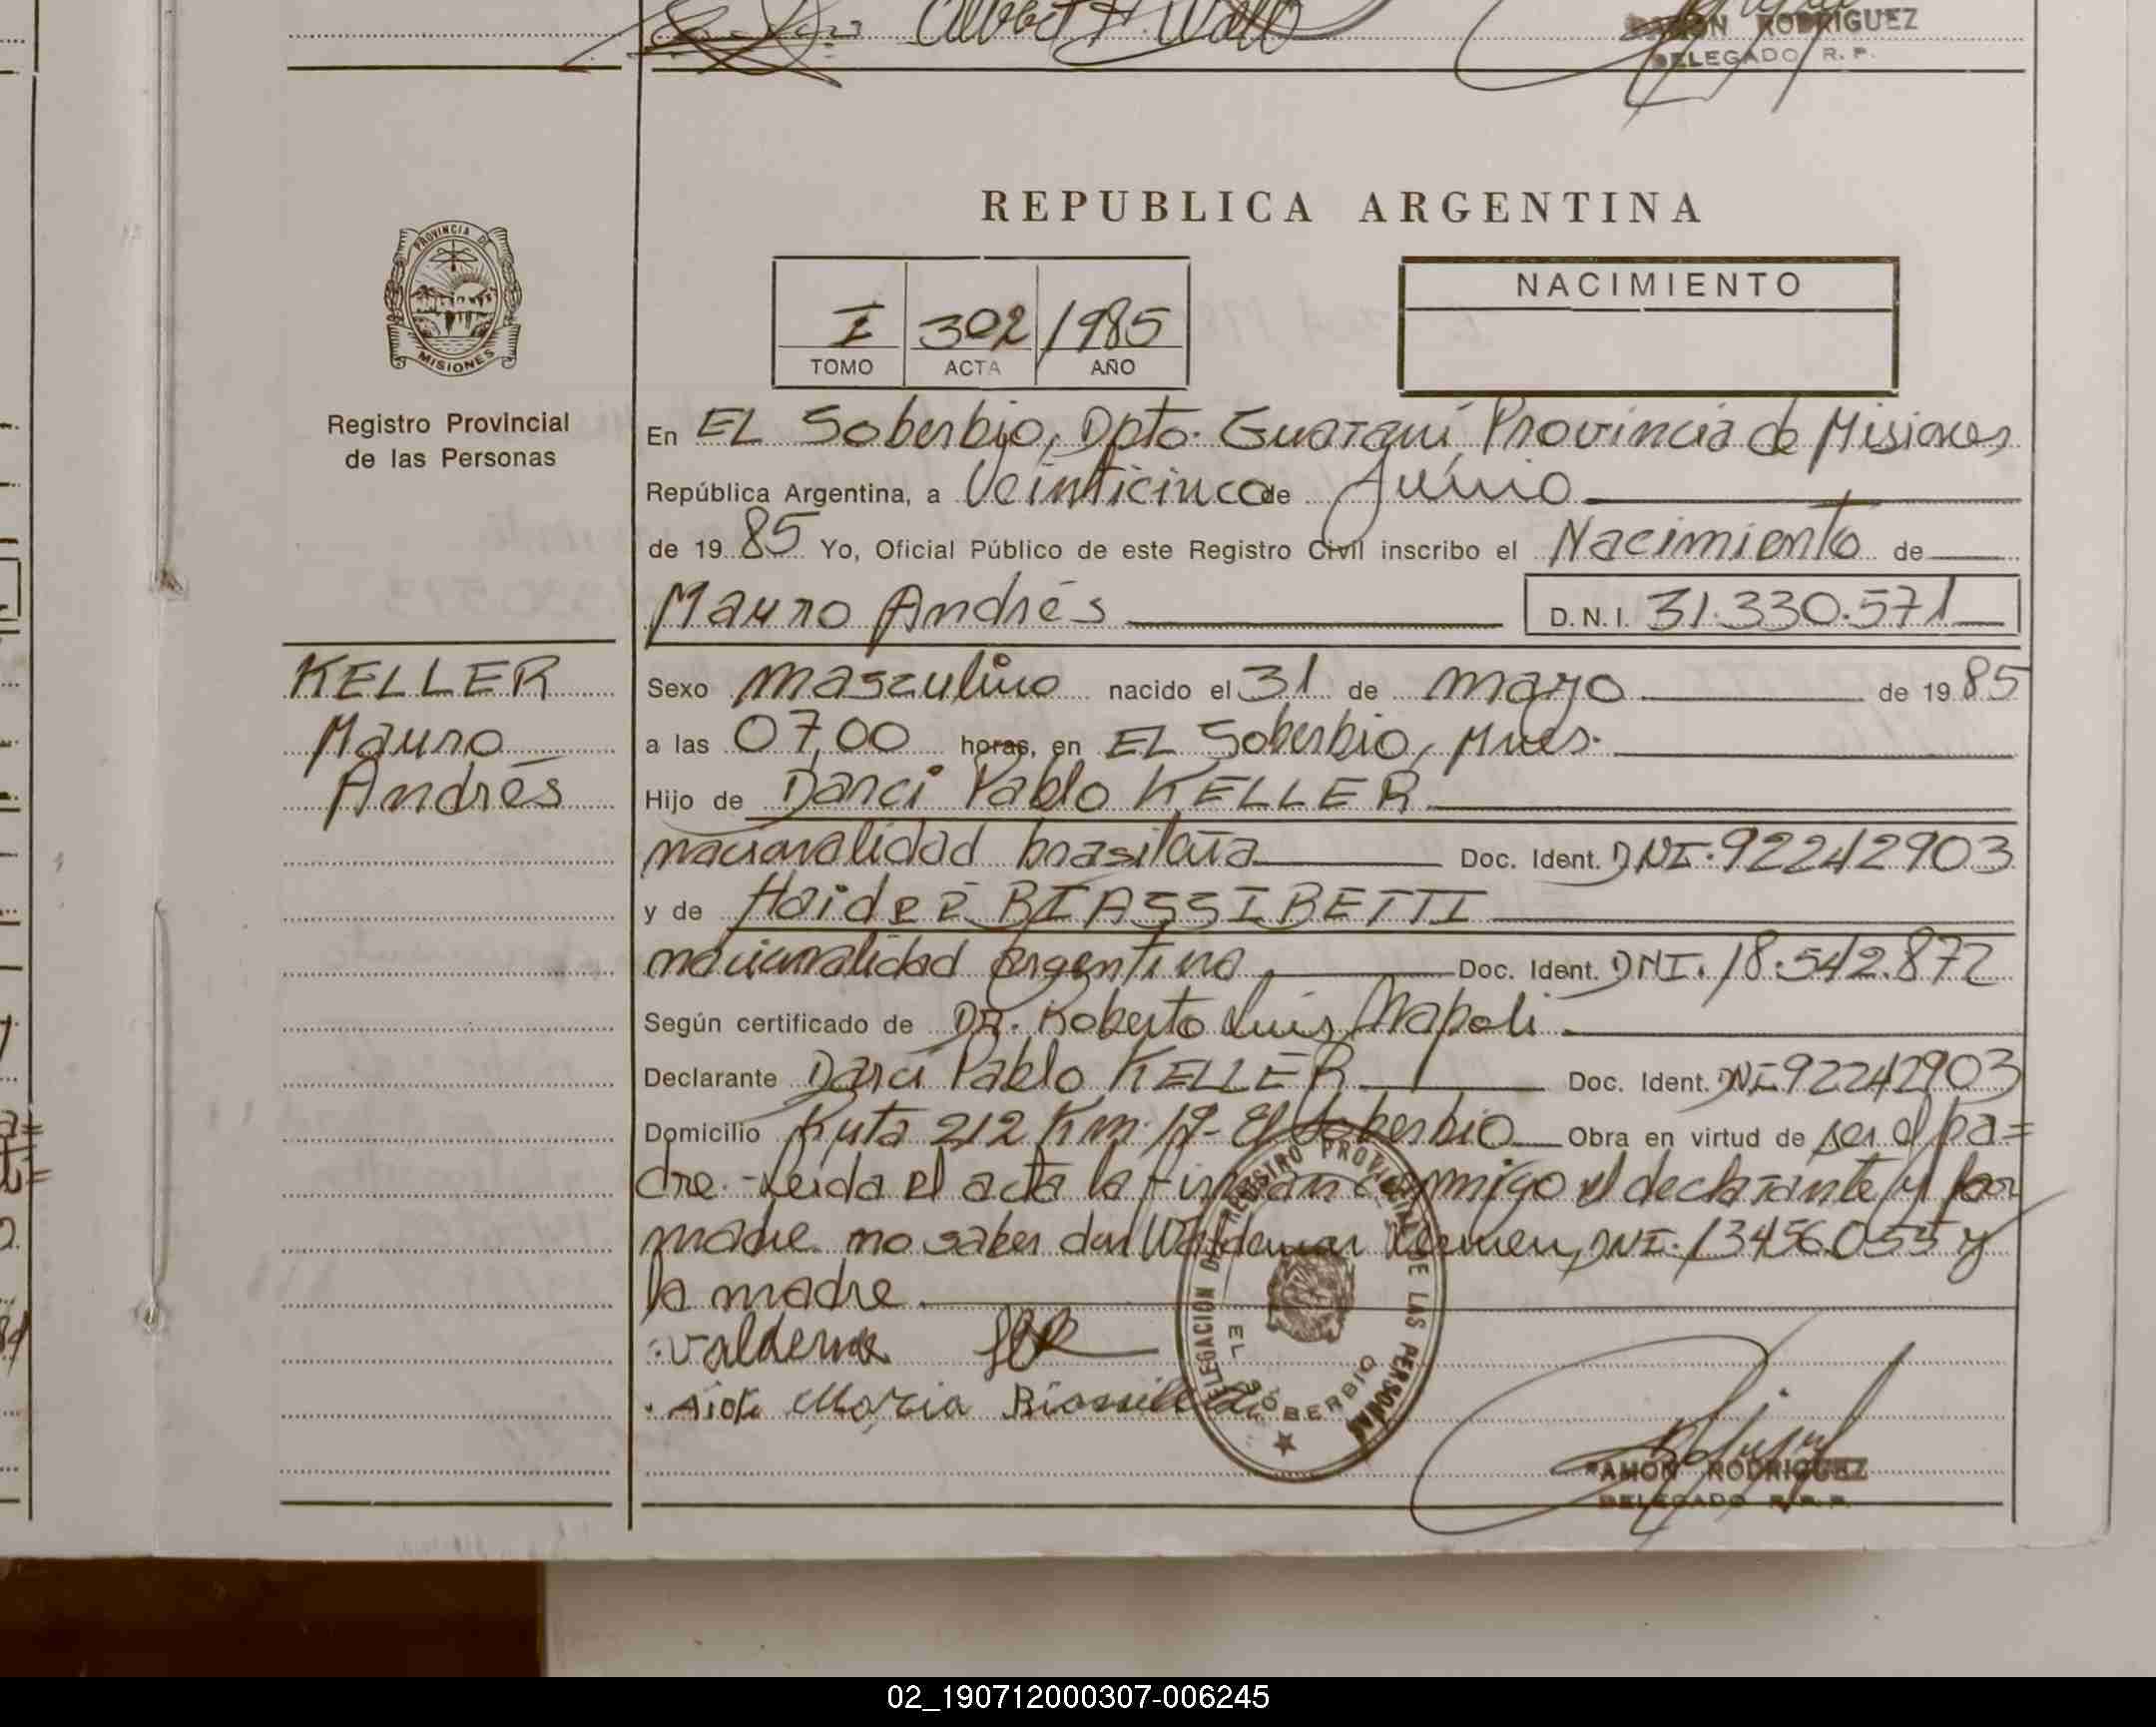 Albert H. Wall
RAMON RODRIGUEZ
DELEGADO R. P.
REPUBLICA ARGENTINA
PROVINCIA DE
MISIONES
Registro Provincial
de las Personas
I 302 1985
TOMO ACTA AÑO
NACIMIENTO
En EL Soberbio, Dpto. Guaraní Provincia de Misiones
República Argentina, a Veinticinco de Junio
de 19 85 Yo, Oficial Público de este Registro Civil inscribo el Nacimiento de
Mauro Andrés D.N.I. 31.330.571
KELLER
Mauro
Andrés
Sexo masculino nacido el 31 de mayo de 19 85
a las 07,00 horas, en EL Soberbio, Mnes.
Hijo de Darci Pablo KELLER
nacionalidad brasileña Doc. Ident. DNI. 92242903
y de Haideé BIASSIBETTI
nacionalidad argentina, Doc. Ident. DNI. 18.542.872
Según certificado de DR. Roberto Luis Napoli
Declarante Darci Pablo KELLER Doc. Ident. DNI 92242903
Domicilio Ruta 212 Km. 17- El Soberbio Obra en virtud de ser el pa=
dre.-Leida el acta la firman conmigo el declarante y por
madre no saber don Waldemar DNI. 13456.055 y
la madre
Maria
REGISTRO PROVINCIAL DE LAS PERSONAS
DELEGACION
EL SOBERBIO
RAMON RODRIGUEZ
DELEGADO R.P.P.
02_190712000307-006245